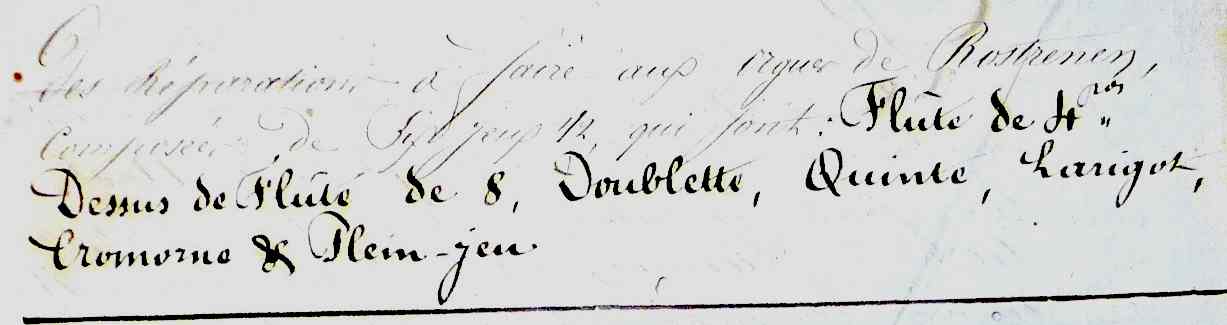 Des Réparations à faire aux Orgues de Rostrenen,
Composées de Six jeux 1/2 qui sont : Flûte de 4 pds
Dessus de Flûte de 8, Doublette, Quinte, Larigot,
Cromorne & Plein-jeu.